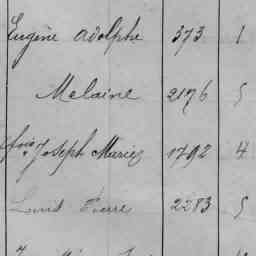 Eugène Adolphe 373 1
Melaine 2176 5
fois Joseph Marie 1792 4
Louis Pierre 2283 5